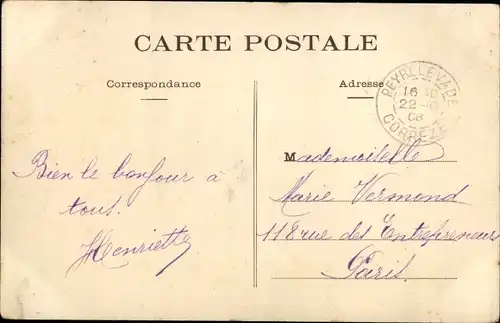 CARTE POSTALE
Correspondance
Adresse
PEYRELEVADE
22
08
CORREZE
Bien le bonjour à
tous.
Henriette
Mademoiselle
Marie Vermond
118 rue des Entrepreneurs
Paris.